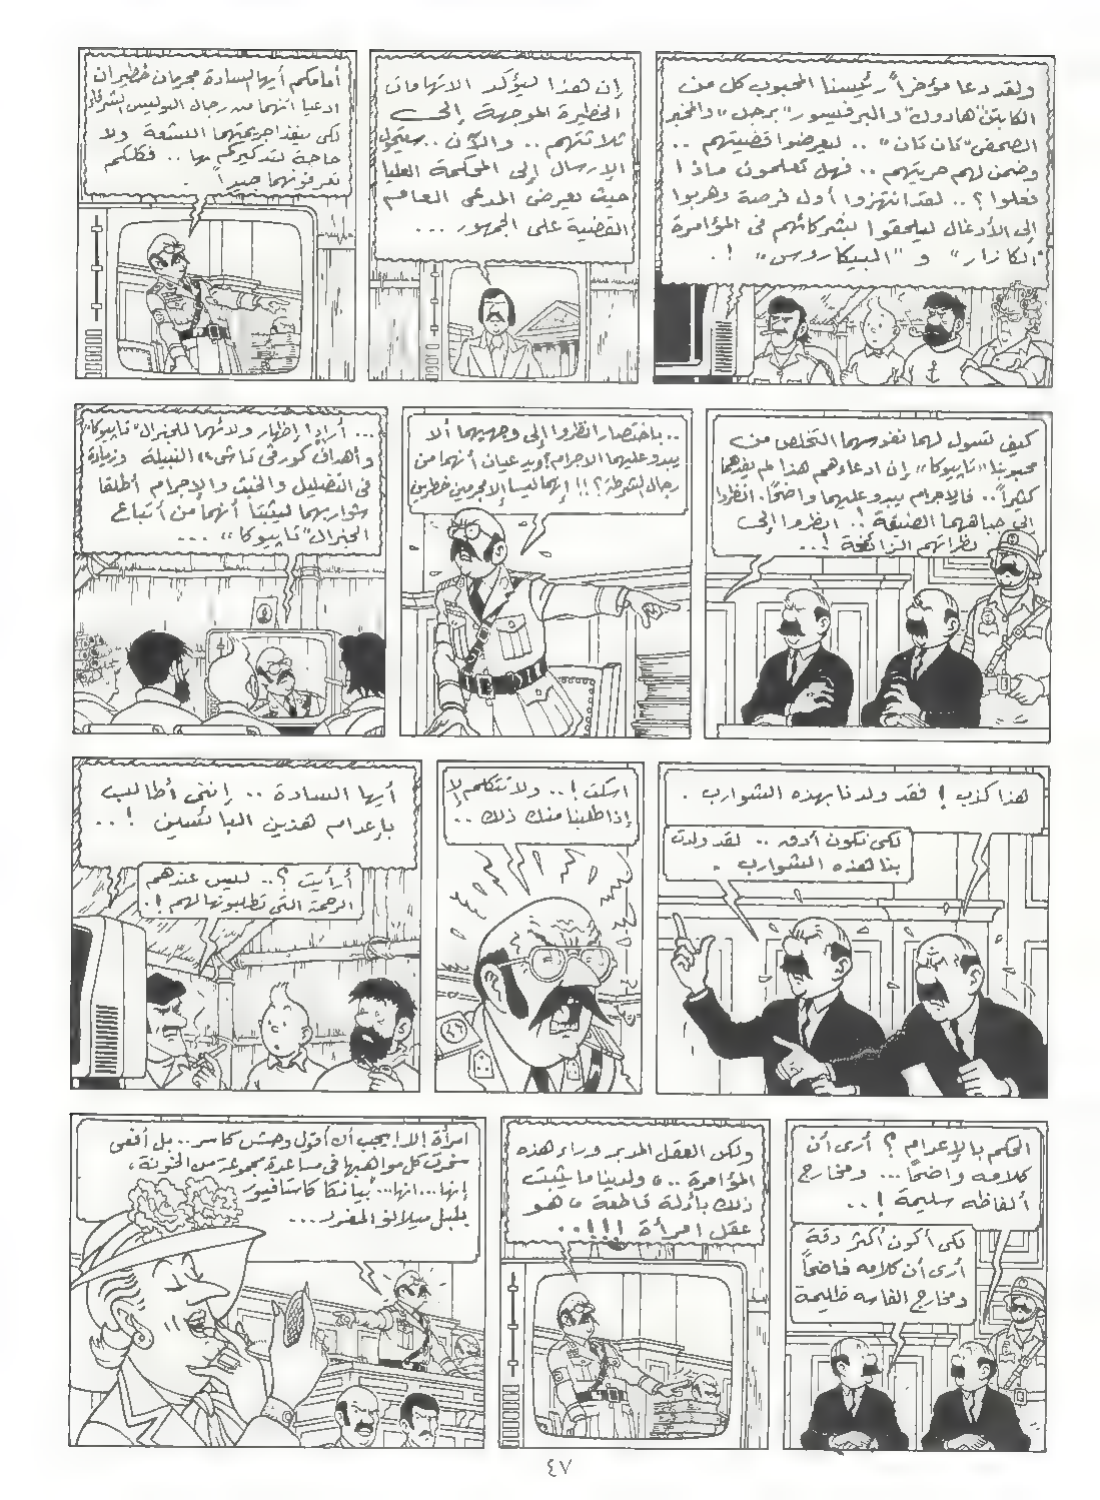 ولقد دعا مؤخراً رئيسنا المحبوب كل من
الكابتن "هادوك" والبرفسور "برجل" والمخبر
الصحفى "تان تان" .. ليعرضوا قضيتهم ..
وضمن لهم حريتهم .. فهل تعلمون ماذا
فعلوا ؟ .. لقد انتهزوا أول فرصة وهربوا
إلى الأدغال ليلحقوا بشركائهم فى المؤامرة
"الكازار" و "البيكاروس" ! .
إن هذا ليؤكد الاتهامات
الخطيرة الموجهة إلى
ثلاثتهم .. والآن .. ستحول
الإرسال إلى المحكمة العليا
حيث يعرض المدعى العام
القضية على الجمهور ...
أمامكم أيها السادة مجرمان خطيران
ادعيا انهما من رجال البوليس الشرفاء
لكى ينفذا جريمتهما البشعة ولا
حاجة لتذكيركم بها .. فكلكم
تعرفونهما جيداً .
كيف تسول لهما نفوسهما التخلص من
محبوبنا "تابيوكا" إن ادعاءهم هذا لم يفدهما
كثيراً .. فالاجرام يبدو عليهما واضحاً . انظروا
إلى جباههما الضيقة ! .. انظروا إلى
نظراتهم الزائغة ! ...
.. باختصار انظروا إلى وجهيهما ألا
يبدو عليهما الاجرام أويدعيان أنهما من
رجال الشرطة ؟ !! إنهما ليسا إلا مجرمين خطرين
... أرادا إظهار ولائهما للجنرال "تابيوكا"
وأهداف كورفى تاش" النبيلة وزيادة
فى التضليل والخبث والإجرام أطلقا
شواربهما ليثبتا أنهما من أتباع
الجنرال "تابيوكا" ...
هذا كذب ! فقد ولدنا بهذه الشوارب .
لكى نكون أدق .. لقد ولدت
بنا هذه الشوارب .
اسكت ! .. ولا تتكلم إلا
إذا طلبنا منك ذلك ..
أيها السادة .. إننى أطالب
بإعدام هذين البائسين ! ..
أرأيت ؟ .. ليس عندهم
الرحمة التى تطلبونها لهم ! .
الحكم بالإعدام ؟ أرى أن
كلامه واضحاً ... ومخارج
ألفاظه سليمة ! ..
لكى أكون أكثر دقة
أرى أن كلامه فاضحاً
ومخارج الفاسه ظليمة
ولكن العقل المدبر وراء هذه
المؤامرة .. ولدينا ما يثبت
ذلك بأدلة قاطعة ، هو
عقل امرأة !!! ..
امرأة !لا! يجب أن أقول وحش كاسر .. بل أفعى
سخرت كل مواهبها فى مساعدة مجموعة من الخونة ،
إنها ... انها .. "بيانكا كاستافيور"
بلبل ميلانو المغرد ...
٤٧